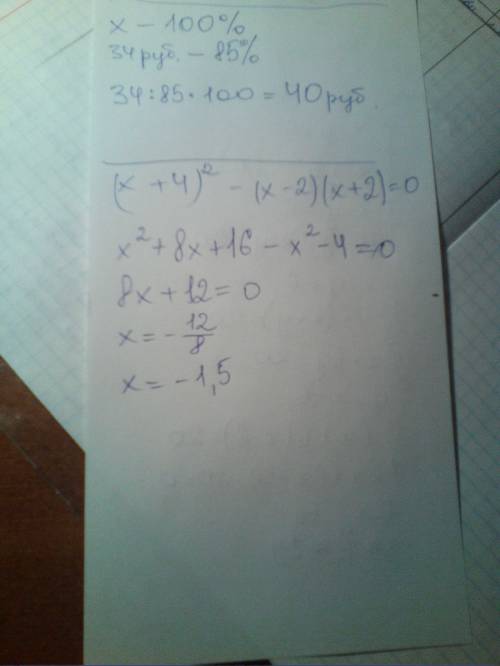 x – 100%
34 руб. – 85%
34:85·100 = 40 руб.
(x + 4)² – (x – 2)(x + 2) = 0
x² + 8x + 16 – x² – 4 = 0
8x + 12 = 0
x = – 12/8
x = – 1,5